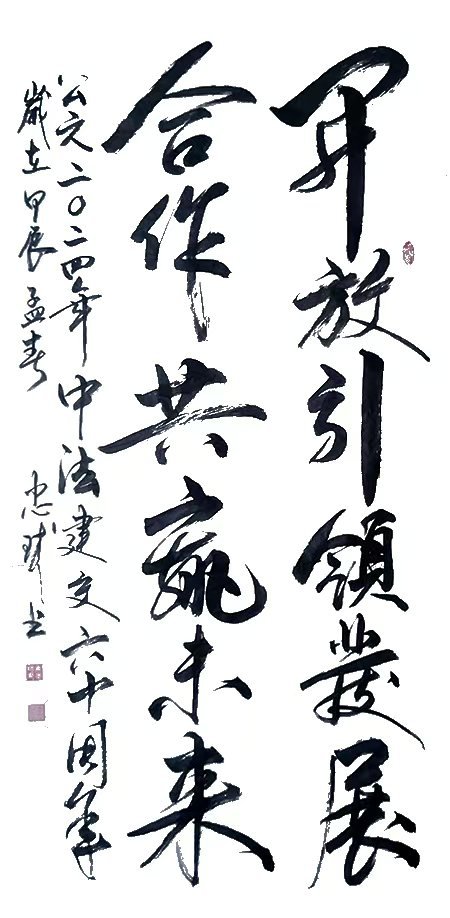 開放引領發展
合作共贏未来
公元二〇二四年中法建交六十周年
歲在甲辰孟春
忠 书